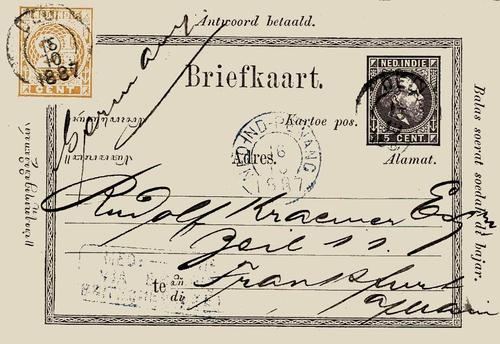 Antwoord betaald.
15
10
1887
CENT
Germany
Briefkaart.
NED. INDIE
5 CENT.
Kartoe pos.
Adres.
Alamat.
NED:IND-PENANG
16
1887
Rudolf Kraemer Esq
Zeil 11.
Frankfurt
a/main
te
di
NED:
VIA
Balas soerat soedah di bajar.